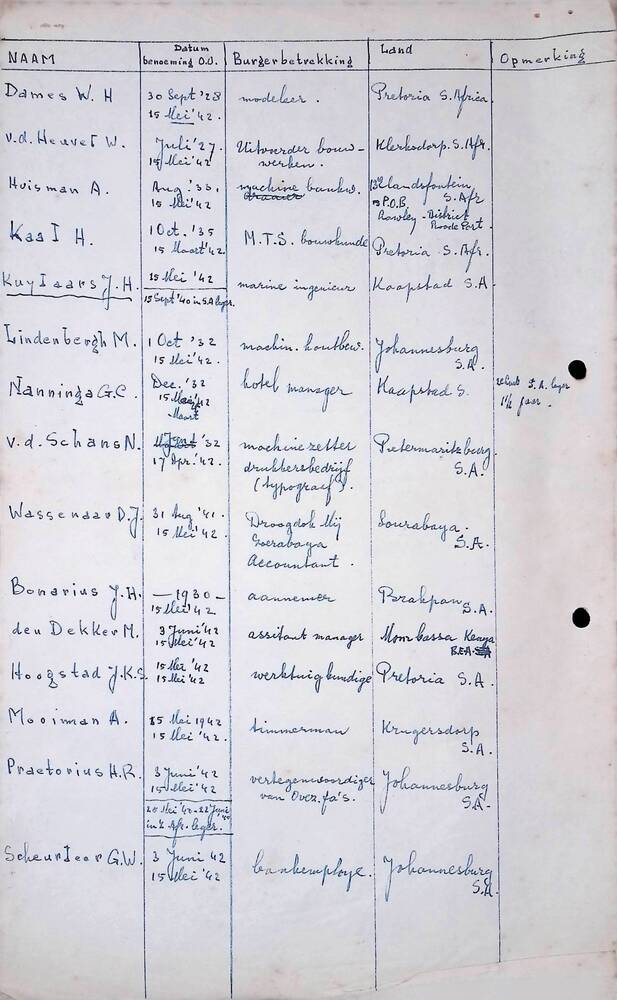 NAAM Datum benoeming O.O. Burgerbetrekking Land Opmerking
Dames W. H 30 Sept '28 modeleur. Pretoria S. Africa
15 Mei '42.
v.d. Heuvel W. Juli '27. Uitvoerder bouw- Klerksdorp. S. Afr.
15 Mei '42 werken.
Huisman A. Aug. '33. machine bankw. Elandsfontein
15 Mei '42 S. Afr
P.O.B.
Rowley - District
Kaal H. 1 Oct. '35 M.T.S. bouwkunde Pretoria S. Afr.
15 Maart '42.
Kuylaars J. H. 15 Mei '42 marine ingenieur Kaapstad S.A.
15 Sept '40 in S.A leger.
Lindenbergh M. 1 Oct '32 machin. houtbew. Johannesburg
15 Mei '42. S.A.
Nanninga G.C. Dec. '32 hotel manager Kaapstad S. S. A. leger
15 '42 1½ jaar.
Maart
v.d. Schans N. '32 machinezetter Pietermaritzburg
17 Apr. '42. drukkersbedrijf S.A.
(typograaf).
Wassenaar D.J. 31 Aug '41. Droogdok Mij Sourabaya.
15 Mei '42. Soerabaya S.A.
Accountant.
Bonarius J.H. — 1930 — aannemer Brakpan S.A.
15 Mei '42
den Dekker M. 3 Juni '42 assitant manager Mombassa Kenya
15 Mei '42 B.E.A.
Hoogstad J.K.S. 15 Mei '42 werktuigkundige Pretoria S.A.
15 Mei '42
Mooiman A. 15 Mei 1942 timmerman Krugersdorp
15 Mei '42. S.A.
Praetorius H.R. 3 Juni '42 vertegenwoordiger Johannesburg
15 Mei '42 van Overz. fa's. S.A.
in Z. Afr. leger.
Scheurleer G.W. 3 Juni '42 bankemploye. Johannesburg
15 Mei '42 S.A.